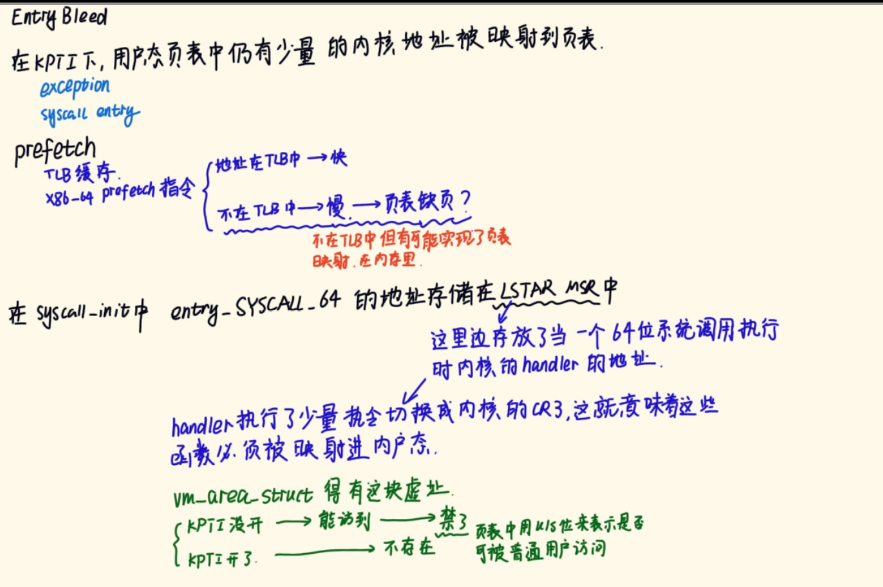 EntryBleed
在KPTI下,用户态页表中仍有少量的内核地址被映射到页表.
exception
syscall entry
prefetch
TLB缓存.
x86-64 prefetch 指令
地址在TLB中 → 快
不在TLB中 → 慢. → 页表缺页?
不在TLB中但有可能实现了页表
映射.在内存里.
在 syscall_init中 entry_SYSCALL_64 的地址存储在LSTAR MSR中
这里边存放了当一个64位系统调用执行
时内核的handler的地址.
handler执行了少量指令切换成内核的CR3,这就意味着这些
函数必须被映射进内户态.
vm_area_struct 得有这块虚址.
KPTI没开 → 能访到 → 禁了
KPTI开了. → 不存在
页表中用K/S位来表示是否
可被普通用户访问